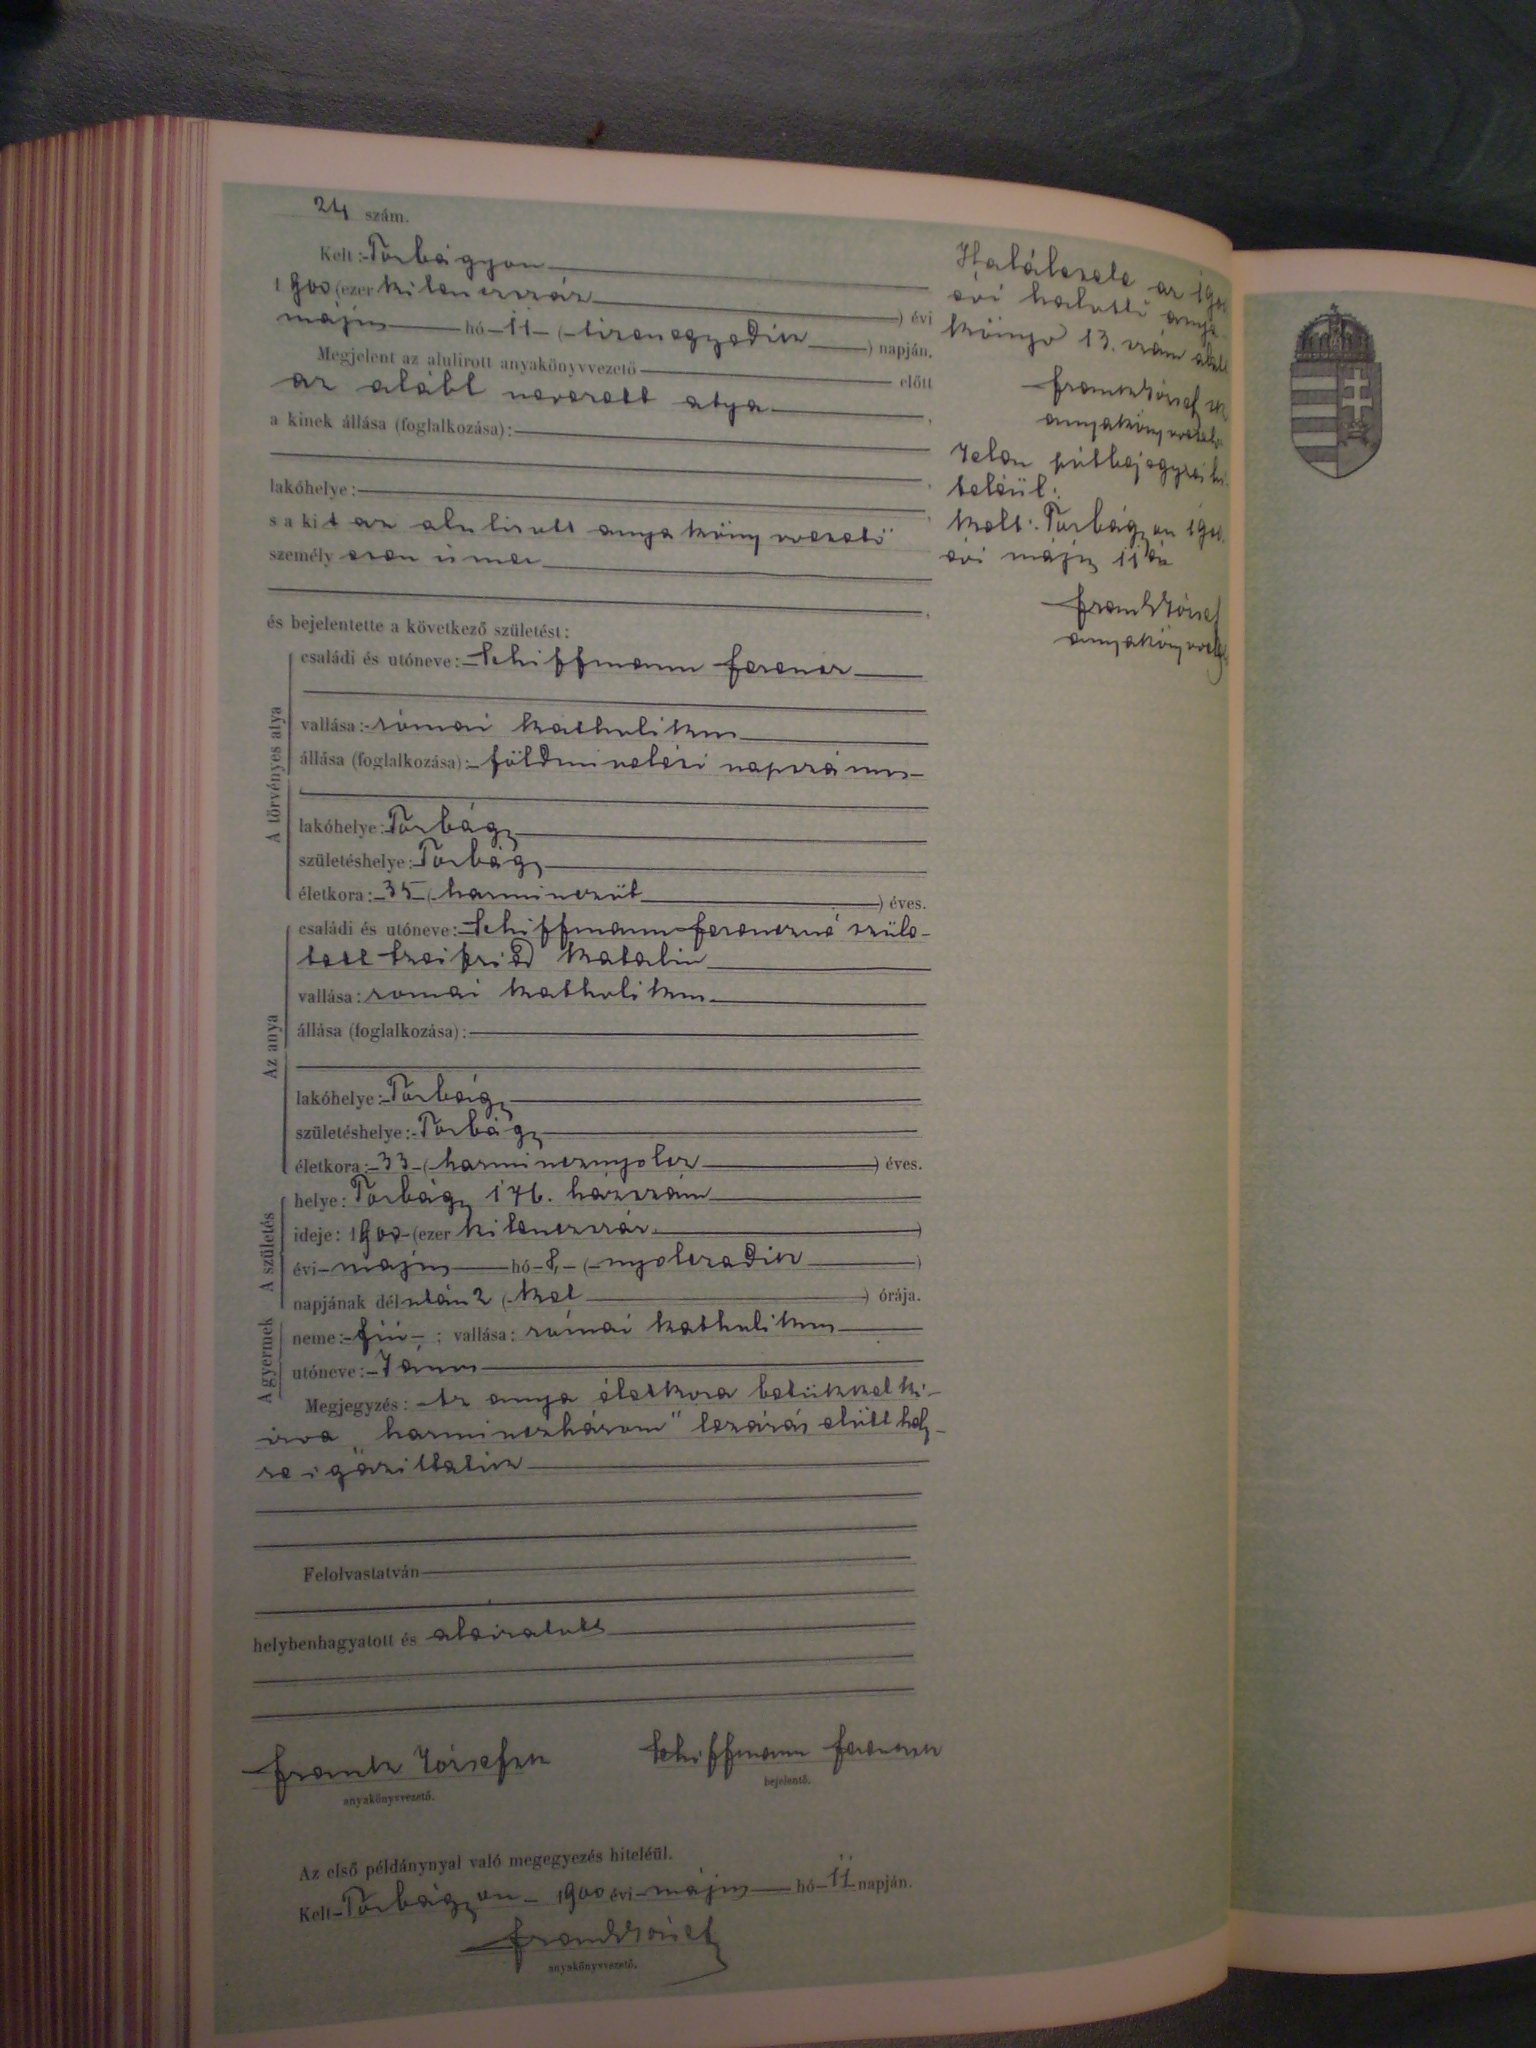 24 szám.
Kelt: Torbágyon
1900 (ezer kilenczszáz) évi
május hó 11 (tizenegyedik) napján.
Megjelent az alulirott anyakönyvvezető előtt
az alább nevezett atya,
a kinek állása (foglalkozása):
lakóhelye:
s a kit az alulirott anyakönyvvezető
személyesen ismer
és bejelentette a következő születést:
A törvényes atya
családi és utóneve: Schiffmann Ferencz
vallása: római katholikus
állása (foglalkozása): földmivelési napszámos
lakóhelye: Torbágy
születéshelye: Torbágy
életkora: 35 (harminczöt) éves.
Az anya
családi és utóneve: Schiffmann Ferenczné szüle-
tett Katalin
vallása: romai katholikus
állása (foglalkozása):
lakóhelye: Torbágy
születéshelye: Torbágy
életkora: 33 (harmincznyolcz) éves.
A születés
helye: Torbágy 176. házszám
ideje: 1900 (ezer kilenczszáz)
évi május hó 8, (nyolczadik)
napjának délután 2 (két) órája.
A gyermek
neme: fiú; vallása: római katholikus
utóneve: János
Megjegyzés: Az anya életkora betükkel ki-
irva „harminczhárom" lezárás elött hely-
reigazittatik
Felolvastatván
helybenhagyatott és aláiratott
Frank József sk
anyakönyvvezető.
Schiffmann Ferencz sk
bejelentő.
Az első példánynyal való megegyezés hiteléül.
Kelt Torbágyon 1900 évi május hó 11 napján.
Frank József
anyakönyvvezető.
Halálesete az 1900
évi halotti anya-
könyv 13. szám alatt
Frank József sk
anyakönyvvezető
Jelen pótbejegyzés hi-
teléül:
Kelt: Torbágyon 1900.
évi május 11én
Frank József
anyakönyvvezető